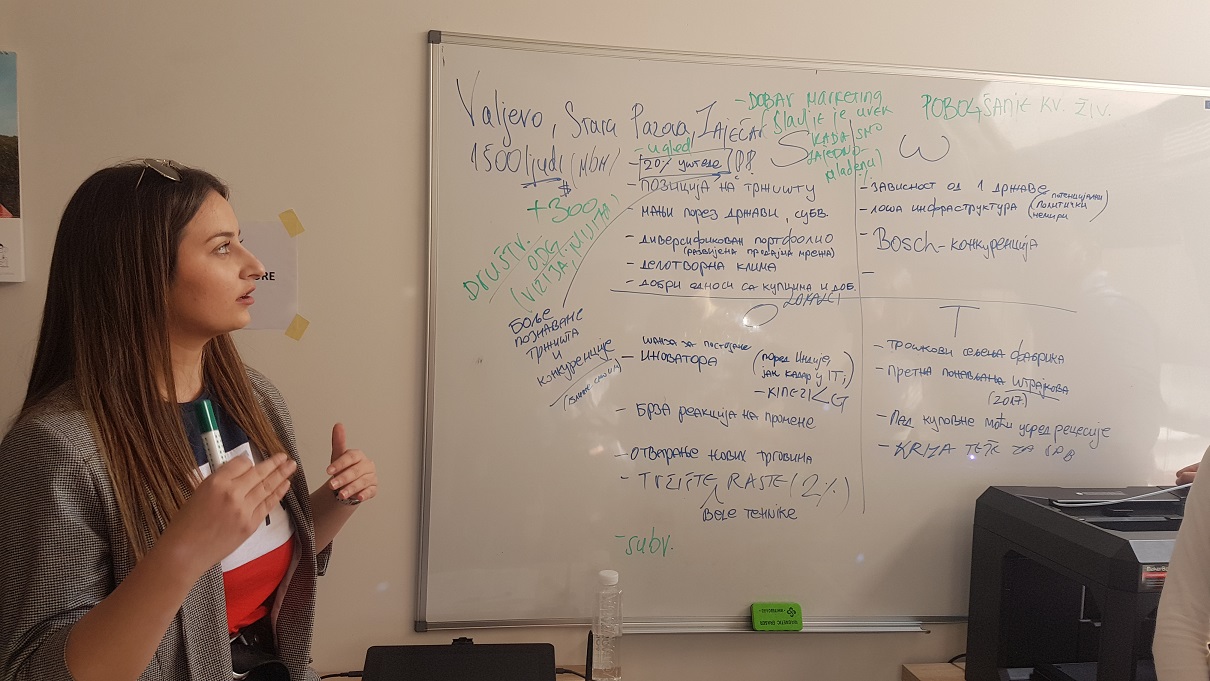 Valjevo, Stara Pazova, Zaječar
1500 ljudi
+300
DRUŠTV.
ODG.
- DOBAR MARKETING
Slavlje je uvek
KADA SMO
ZAJEDNO
mladenci
POBOLJŠANJE KV. ŽIV.
S
W
- ugled
- 20% уштеде
- ПОЗИЦИЈА НА ТРЖИШТУ
- МАЊИ ПОРЕЗ ДРЖАВИ, СУБВ.
- ДИВЕРСИФИКОВАН ПОРТФОЛИО
(РАЗВИЈЕНА ПРОДАЈНА МРЕЖА)
- ДЕЛОТВОРНА КЛИМА
- ДОБРИ ОДНОСИ СА КУПЦИМА И ДОБ.
- ЗАВИСНОСТ ОД 1 ДРЖАВЕ
- ЛОША ИНФРАСТРУКТУРА (ПОТЕНЦИЈАЛНИ
ПОЛИТИЧКИ
НЕМИРИ)
- Bosch-КОНКУРЕНЦИЈА
-
БОЉЕ
ПОЗНАВАЊЕ
ТРЖИШТА
И
КОНКУРЕНЦИЈЕ
O
ШАНСА ЗА
- ИНОВАТОРА
(поред Индије,
јак кадар у IT;)
- КИНЕЗИ LG
- БРЗА РЕАКЦИЈА НА ПРОМЕНЕ
- ОТВАРАЊЕ НОВИХ ТРГОВИНА
- TRŽIŠTE RASTE (2%)
BELE TEHNIKE
- subv.
T
- ТРОШКОВИ СЕЉЕЊА ФАБРИКА
- ПРЕТЊА ПОНАВЉАЊА ШТРАЈКОВА
(2017)
- ПАД КУПОВНЕ МОЋИ УСРЕД РЕЦЕСИЈЕ
- KRIZA TEŽE ZA